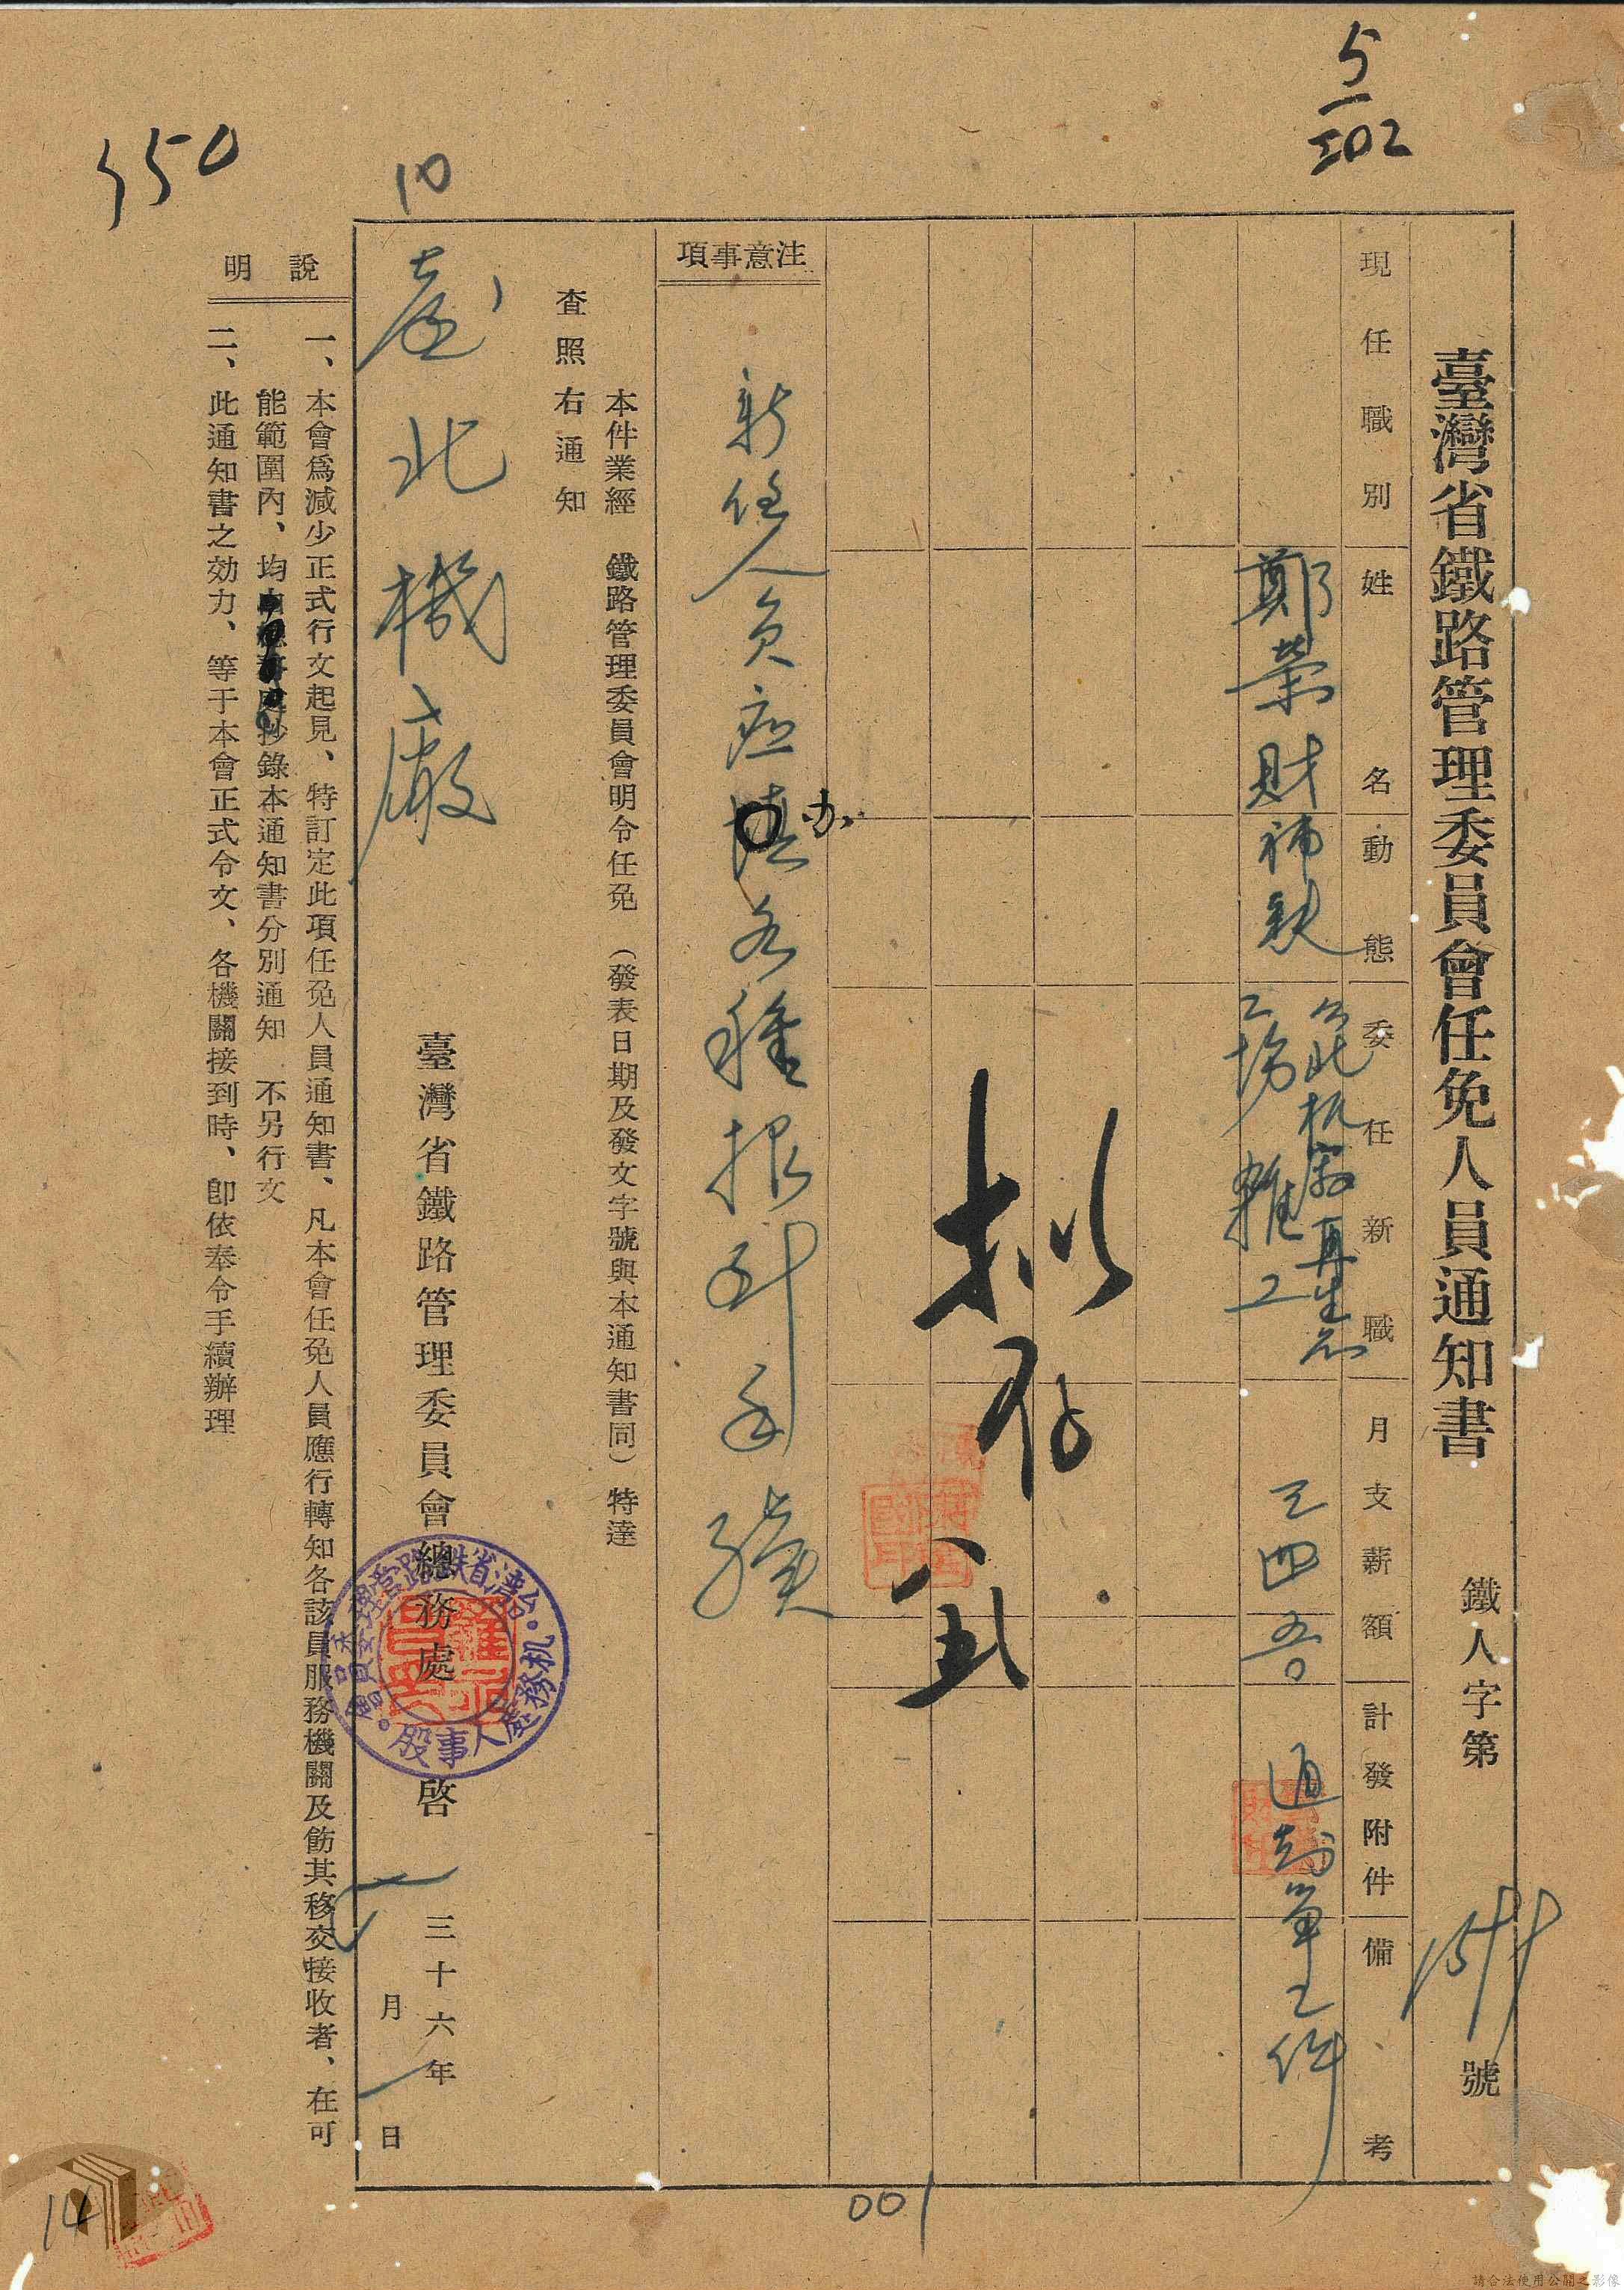 5
302
350
10
臺灣省鐵路管理委員會任免人員通知書
鐵人字第
號
現任職別
姓名
動態
委任新職
月支薪額
計發附件
備考
鄭榮財
補報
台北机廠再生品
工場雜工
三四吾
通知單乙件
擬存
注意事項
新任人員應速办各種報到手續
本件業經 鐵路管理委員會明令任免 (發表日期及發文字號與本通知書同) 特達
查照右通知
臺北機廠
臺灣省鐵路管理委員會總務處 啓
三十六年
月
日
台灣省鉄路管理委員會・机務處人事股
說明
一、本會爲減少正式行文起見、特訂定此項任免人員通知書、凡本會任免人員應行轉知各該員服務機關及飭其移交接收者、在可
能範圍內、均抄錄本通知書分別通知 不另行文
二、此通知書之効力、等于本會正式令文、各機關接到時、卽依奉令手續辦理
001
14
請合法使用公開之影像